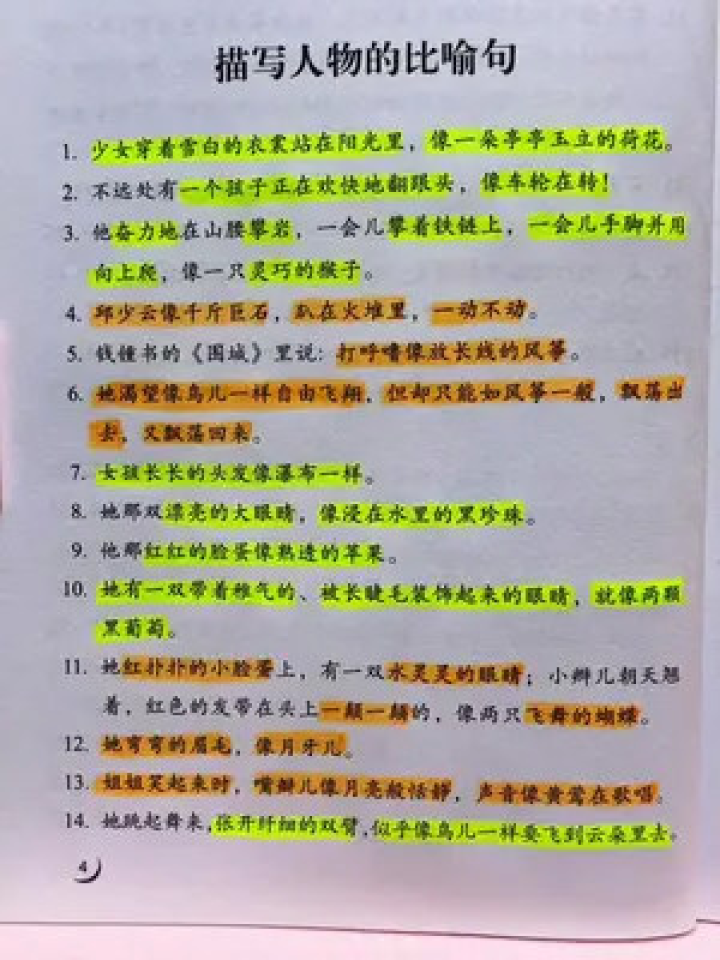 描写人物的比喻句
1. 少女穿着雪白的衣裳站在阳光里，像一朵亭亭玉立的荷花。
2. 不远处有一个孩子正在欢快地翻跟头，像车轮在转！
3. 他奋力地在山腰攀岩，一会儿攀着铁链上，一会儿手脚并用
向上爬，像一只灵巧的猴子。
4. 邱少云像千斤巨石，趴在火堆里，一动不动。
5. 钱锺书的《围城》里说：打呼噜像放长线的风筝。
6. 她渴望像鸟儿一样自由飞翔，但却只能如风筝一般，飘荡出
去，又飘荡回来。
7. 女孩长长的头发像瀑布一样。
8. 她那双漂亮的大眼睛，像浸在水里的黑珍珠。
9. 他那红红的脸蛋像熟透的苹果。
10. 她有一双带着稚气的、被长睫毛装饰起来的眼睛，就像两颗
黑葡萄。
11. 她红扑扑的小脸蛋上，有一双水灵灵的眼睛；小辫儿朝天翘
着，红色的发带在头上一颠一颠的，像两只飞舞的蝴蝶。
12. 她弯弯的眉毛，像月牙儿。
13. 姐姐笑起来时，嘴瓣儿像月亮般恬静，声音像黄莺在歌唱。
14. 她跳起舞来，张开纤细的双臂，似乎像鸟儿一样要飞到云朵里去。
4